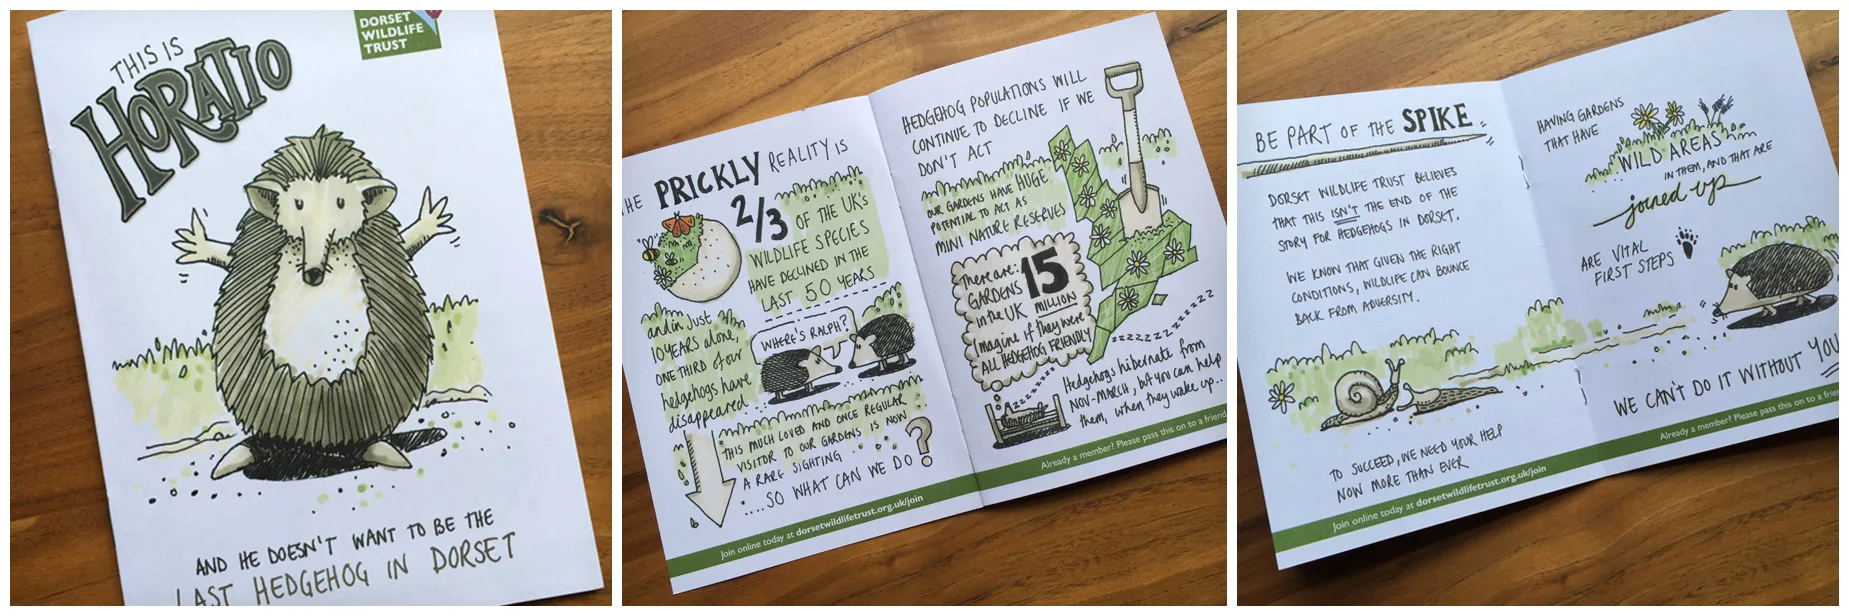 THIS IS
HORATIO
DORSET
WILDLIFE
TRUST
AND HE DOESN'T WANT TO BE THE
LAST HEDGEHOG IN DORSET
THE PRICKLY REALITY IS
2/3 OF THE UK'S
WILDLIFE SPECIES
HAVE DECLINED IN THE
LAST 50 YEARS
and in just
10 YEARS alone,
ONE THIRD of our
hedgehogs have
disappeared
WHERE'S RALPH?
THIS MUCH LOVED AND ONCE REGULAR
VISITOR TO OUR GARDENS IS NOW
A RARE SIGHTING
....SO WHAT CAN WE DO?
Join online today at dorsetwildlifetrust.org.uk/join
HEDGEHOG POPULATIONS WILL
CONTINUE TO DECLINE IF WE
DON'T ACT
OUR GARDENS HAVE HUGE
POTENTIAL TO ACT AS
MINI NATURE RESERVES
There are:
15
GARDENS
in the UK MILLION
Imagine if they were
ALL HEDGEHOG FRIENDLY
zzzzzzzzzzzz
zzzzz
Hedgehogs hibernate from
NOV-MARCH, but you can help
them, when they wake up...
Already a member? Please pass this on to a friend
BE PART OF THE SPIKE
DORSET WILDLIFE TRUST BELIEVES
THAT THIS ISN'T THE END OF THE
STORY FOR HEDGEHOGS IN DORSET.
WE KNOW THAT GIVEN THE RIGHT
CONDITIONS, WILDLIFE CAN BOUNCE
BACK FROM ADVERSITY.
TO SUCCEED, WE NEED YOUR HELP
NOW MORE THAN EVER
Join online today at dorsetwildlifetrust.org.uk/join
HAVING GARDENS
THAT HAVE
WILD AREAS
IN THEM, AND THAT ARE
joined up
ARE VITAL
FIRST STEPS
WE CAN'T DO IT WITHOUT YOU
Already a member? Please pass this on to a frien